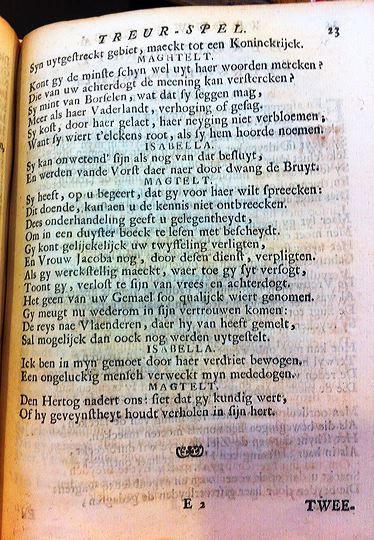 TREUR-SPEL. 23
Syn uytgestreckt gebiet, maeckt tot een Koninckrijck.
MAGHTELT.
Kont gy de minste schyn wel uyt haer woorden mercken?
Die van uw achterdogt de meening kan verstercken?
Sy mint van Borselen, wat dat sy seggen mag,
Meer als haer Vaderlandt, verhoging of gesag.
Sy kost, door haer gelaet, haer neyging niet verbloemen;
Want sy wiert t'elckens root, als sy hem hoorde noemen.
ISABELLA.
Sy kan onwetend' sijn als nog van dat besluyt,
En werden vande Vorst daer naer door dwang de Bruyt.
MAGTELT.
Sy heeft, op u begeert, dat gy voor haer wilt spreecken:
Dit doende, kan aen u de kennis niet ontbreecken.
Dees onderhandeling geeft u gelegentheydt,
Om in een duyster boeck te lesen met bescheydt.
Gy kont gelijckelijck uw twyffeling verligten,
En Vrouw Jacoba nog, door desen dienst, verpligten.
Als gy werckstellig maeckt, waer toe gy syt versogt,
Toont gy, verlost te sijn van vrees en achterdogt.
Het geen van uw Gemael soo qualijck wiert genomen.
Gy meugt nu wederom in sijn vertrouwen komen:
De reys nae Vlaenderen, daer hy van heeft gemelt,
Sal mogelijck dan oock nog werden uytgestelt.
ISABELLA.
Ick ben in myn gemoet door haer verdriet bewogen,
Een ongeluckig mensch verweckt myn mededogen.
MAGTELT.
Den Hertog nadert ons: siet dat gy kundig wert,
Of hy geveynstheyt houdt verholen in sijn hert.
E 2 TWEE-